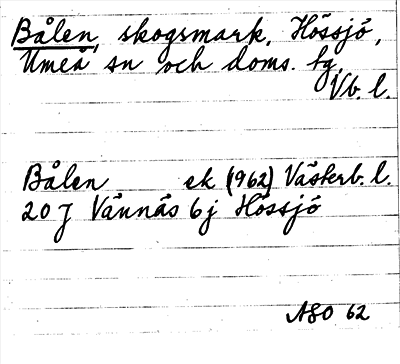 Bålen, skogsmark, Hössjö,
Umeå sn och doms. fg,
Vb. l.
Bålen ek (962) Västerb. l.
20 J Vännäs 6j Hössjö
ASO 62